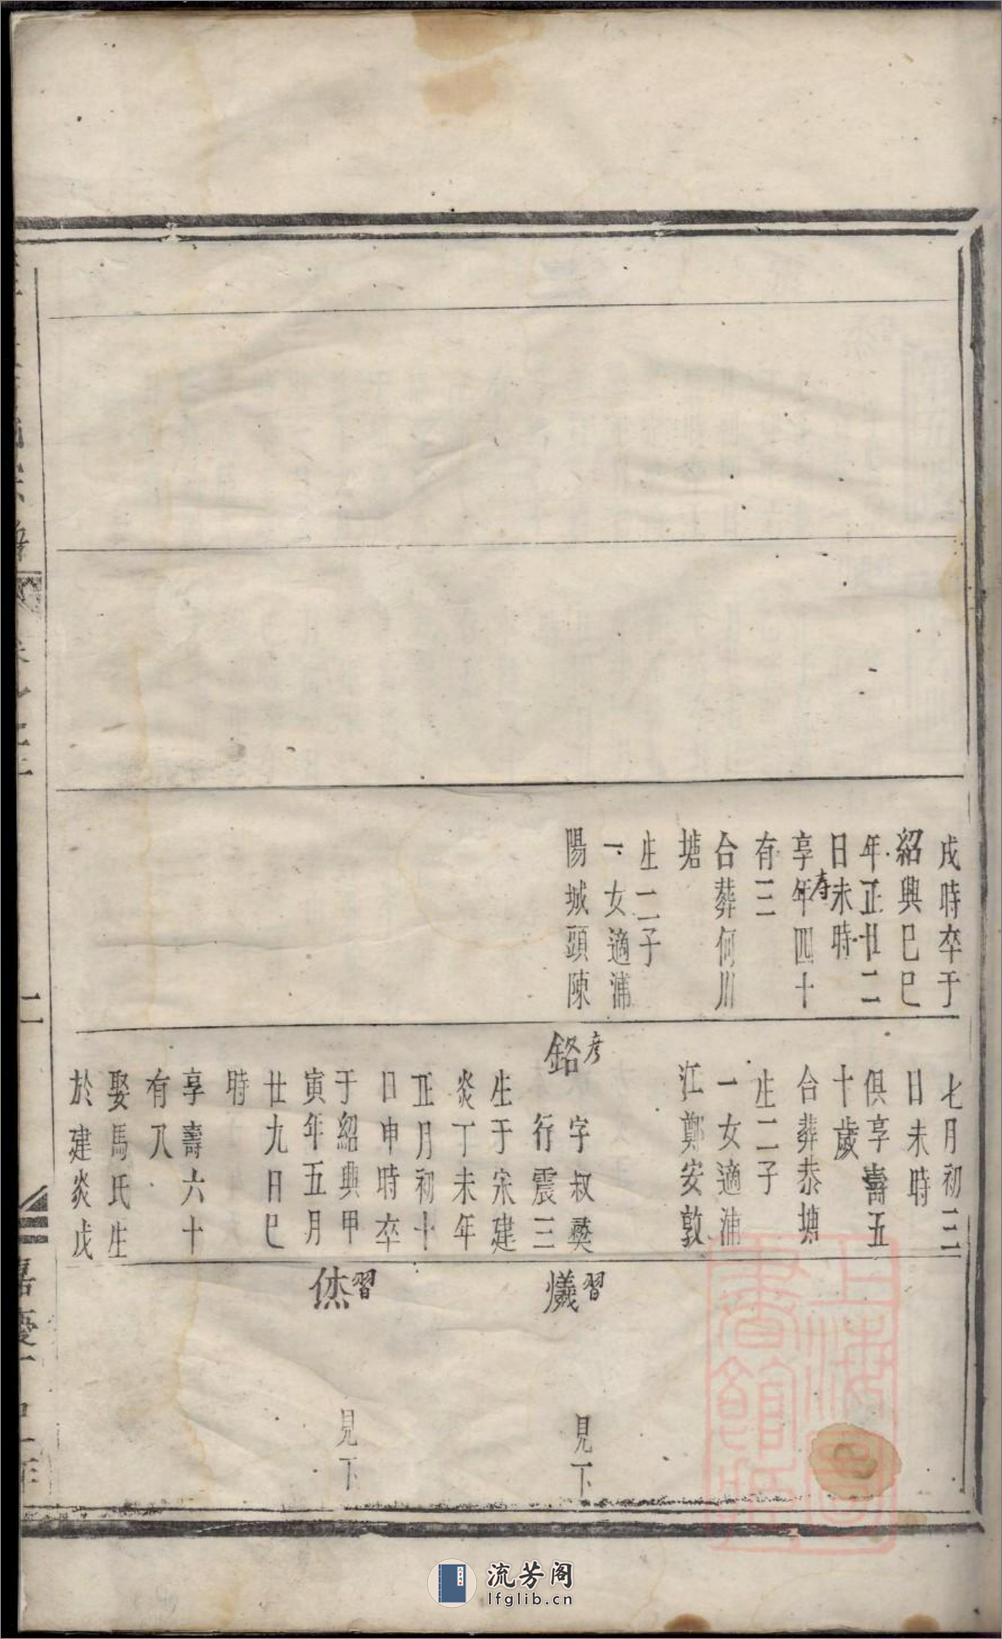 戌時卒于
紹興己巳
年正廿二
日未時
享年四十
壽
有三
合葬何川
塘
生二子
一女適浦
陽城頭陳
七月初三
日未時
俱享壽五
十歲
合葬恭塘
生二子
一女適浦
江鄭安敦
彥
銘
字叔彝
行震三
生于宋建
炎丁未年
正月初十
日申時卒
于紹興甲
寅年五月
廿九日巳
時
享壽六十
有八
娶馬氏生
於建炎戊
習
爔
見下
習
烋
見下
二
上海圖
書館藏
流芳阁
lfglib.cn